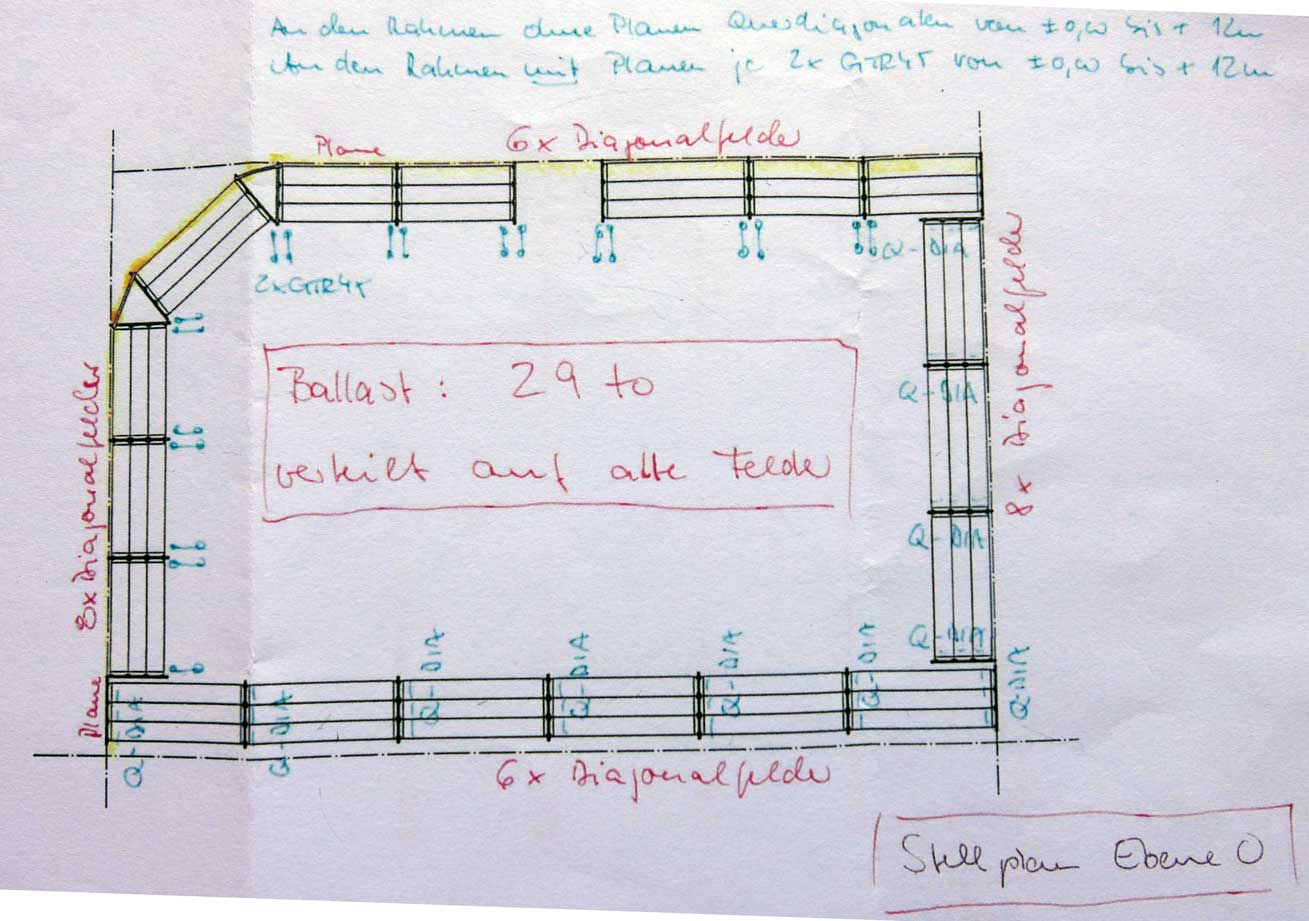 An den Rahmen ohne Planen Querdiagonalen von ±0,00 bis + 12m
An den Rahmen mit Planen je 2x GTR45 von ±0,00 bis + 12m
Plane
6x Diagonalfelder
Q-DIA
2xGTR45
8x Diagonalfelder
8x Diagonalfelder
Ballast: 29 to
verteilt auf alle Felder
Q-DIA
Q-DIA
Q-DIA
Q-DIA
Q-DIA
Q-DIA
Q-DIA
Q-DIA
Plane
Q-DIA
Q-DIA
6x Diagonalfelder
Stellplan Ebene 0